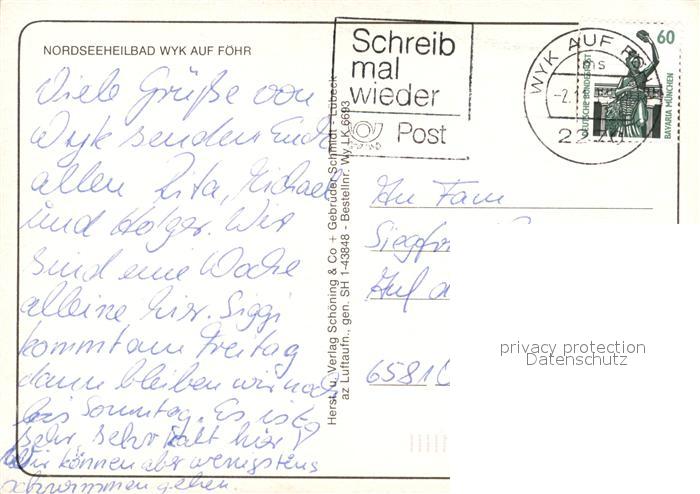 NORDSEEHEILBAD WYK AUF FÖHR
Viele Grüße von
Wyk senden Euch
allen Rita, Michael
und Holger. Wir
sind eine Woche
alleine hier. Siggi
kommt am Freitag
dann bleiben wir noch
bis Sonntag. Es ist
sehr, sehr kalt hier!
Wir können aber wenigstens
schwimmen gehen.
Herst. u. Verlag Schöning & Co + Gebrüder Schmidt - Lübeck
az Luftaufn., gen. SH 1-43848 - Bestellnr. Wy LK 6693
Schreib
mal
wieder
Post
WYK AUF FÖ
ms
-2.
22
60
DEUTSCHE BUNDESPOST
BAVARIA MÜNCHEN
An Fam
Siegfr
Auf d
6581
privacy protection
Datenschutz